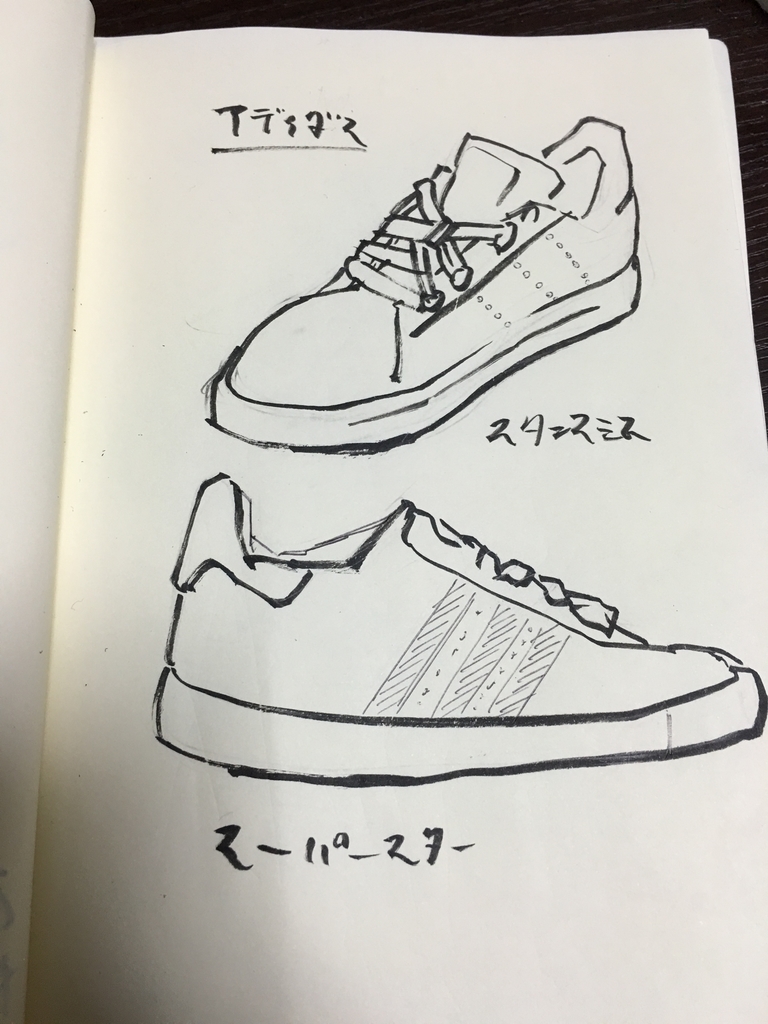 アディダス
スタンスミス
スーパースター